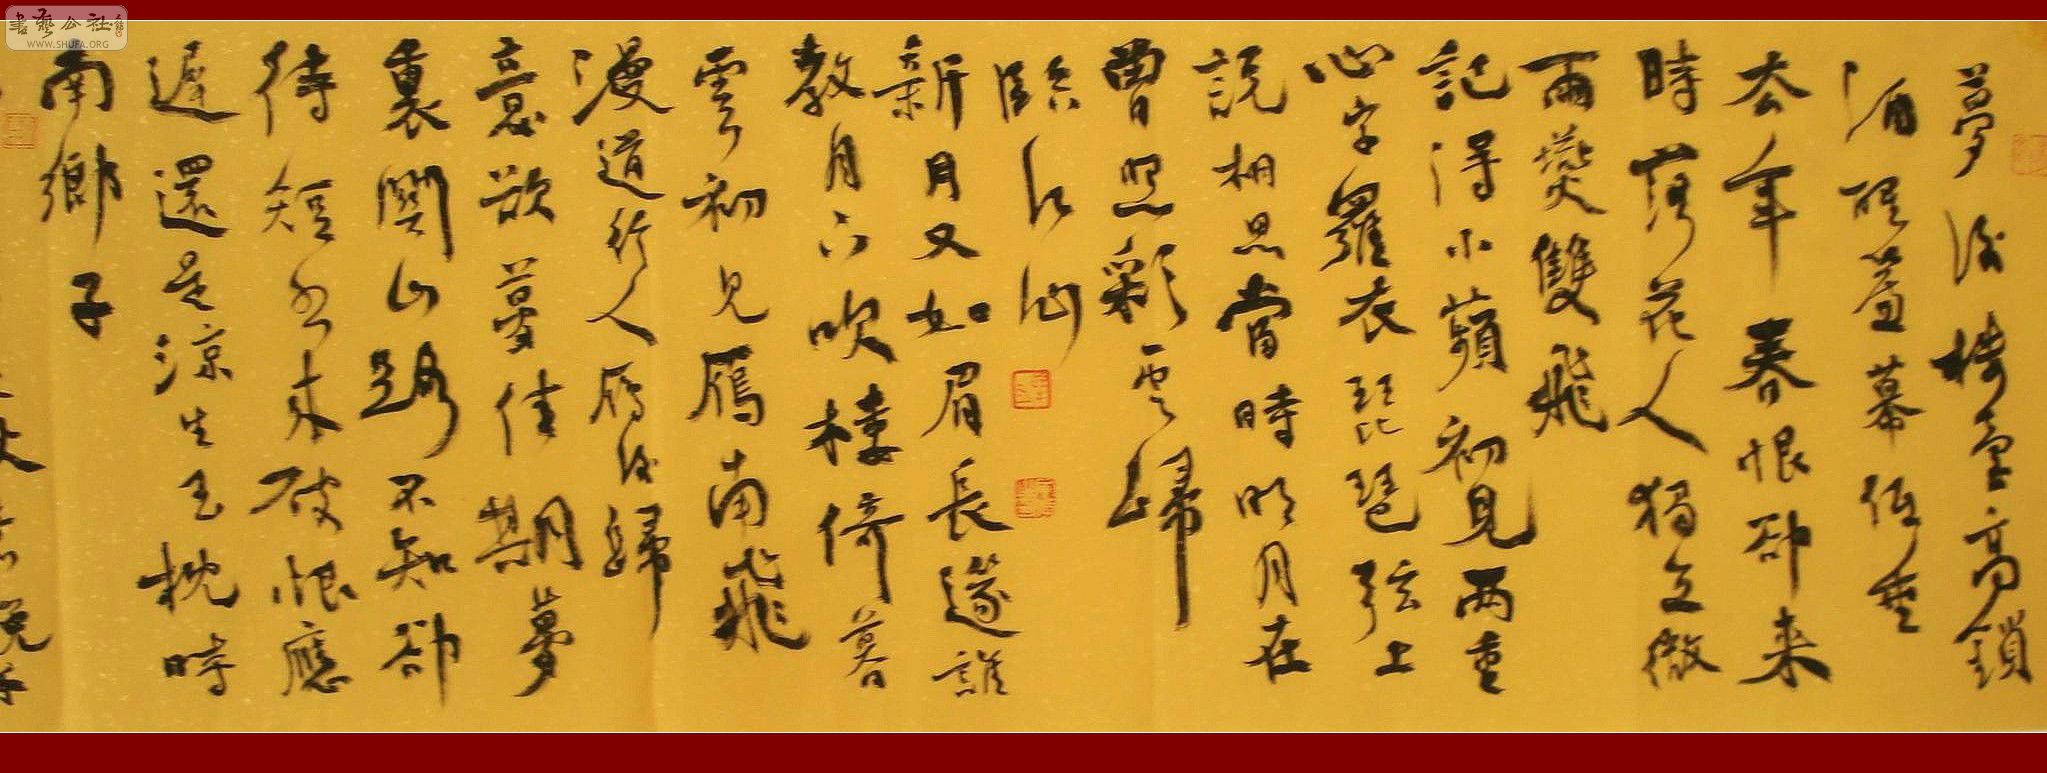 書藝公社
WWW.SHUFA.ORG
夢後樓臺高鎖
酒醒簾幕低垂
去年春恨却来
時落花人獨立微
雨燕雙飛
記得小蘋初見兩重
心字羅衣琵琶弦上
説相思當時明月在
曾照彩雲歸
臨江仙
新月又如眉長篴誰
教月下吹樓倚暮
雲初見鴈南飛
漫道行人鴈後歸
意欲夢佳期夢
裏關山路不知却
待短書来破恨應
遲還是涼生玉枕時
南鄉子